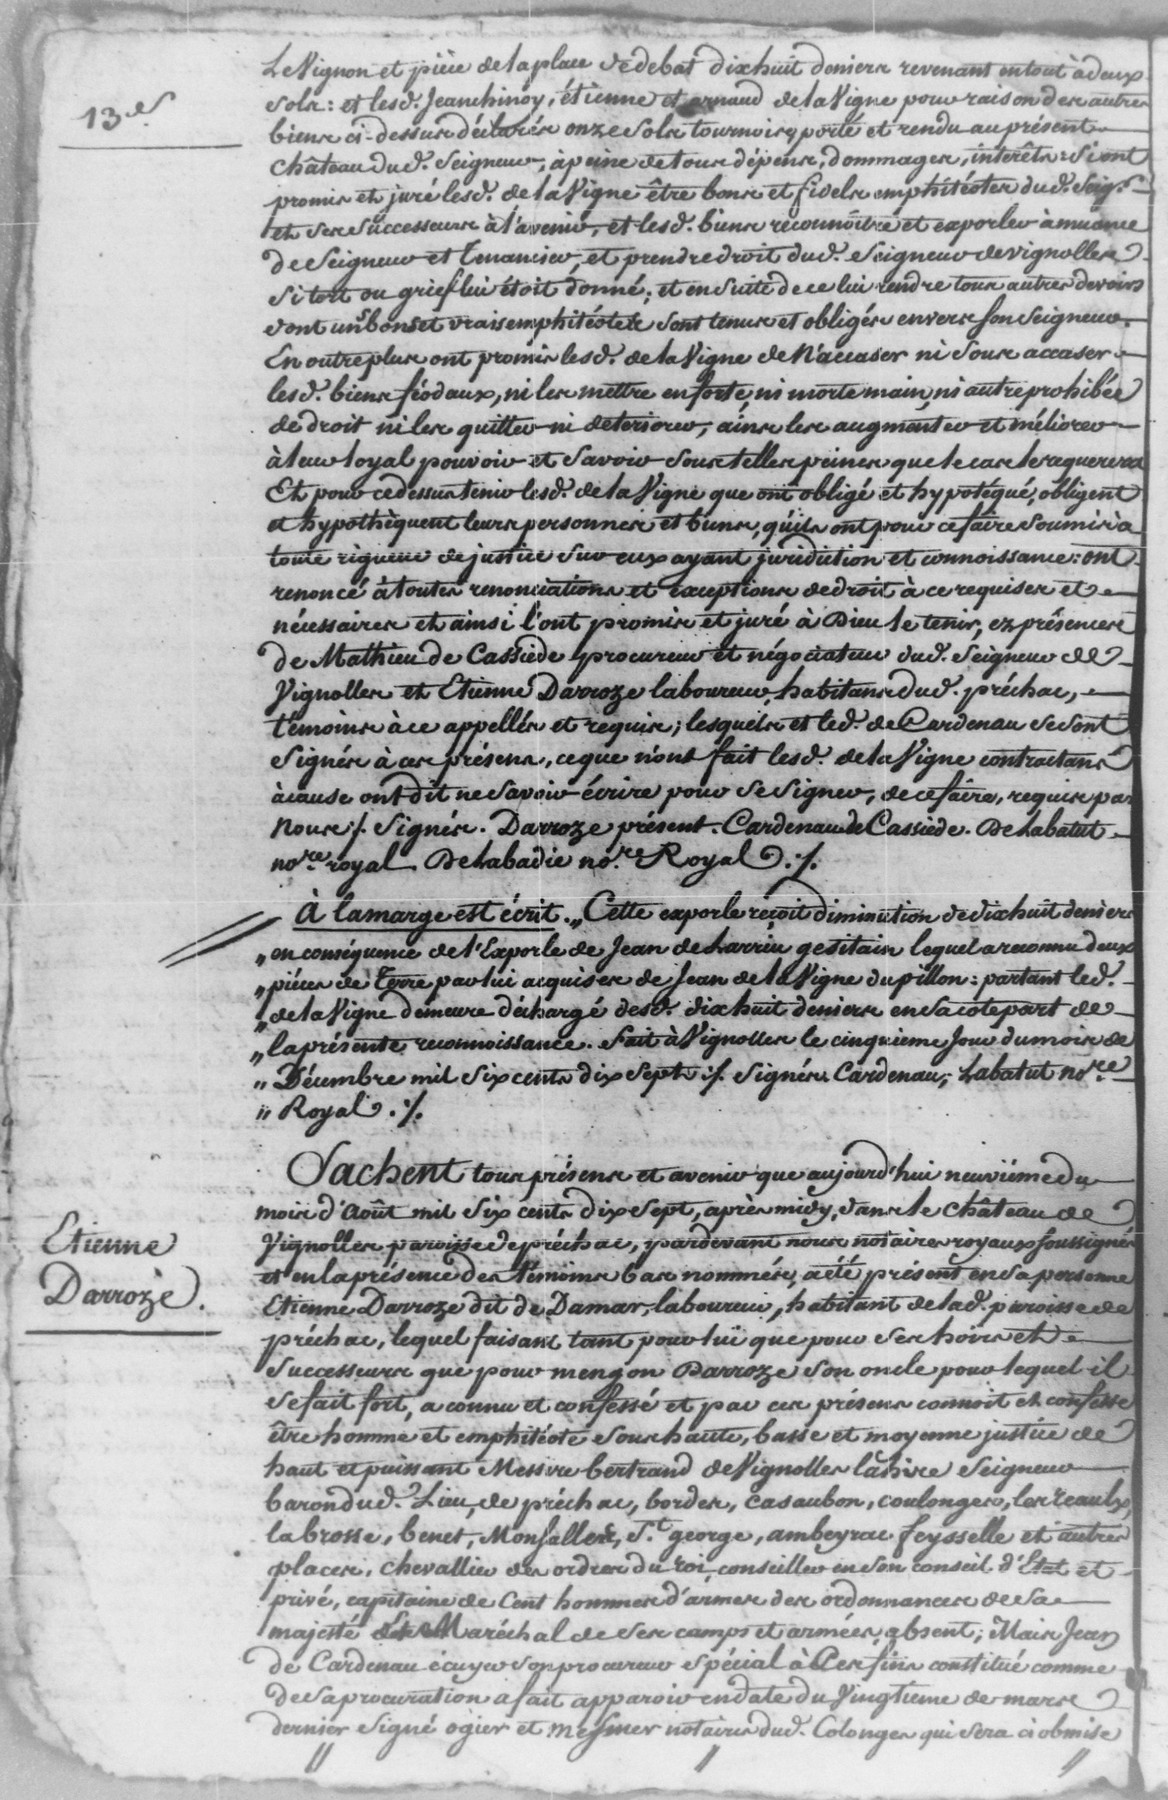 Le Vignon et pièce de la place de debat dixhuit deniers revenant en tout à deux
sols: et lesd. Jeanchinoy, étienne et arnaud de la Vigne pour raison des autres
13.es
biens ci-dessus déclarés onze sols tournois, porté et rendu au présent
château dud. Seigneur, à peine de tous dépens, dommages, intérêts: si ont
promis et juré lesd. de la Vigne être bons et fidels emphitéotes dud. Seigr.
et ses successeurs à l'avenir, et lesd. biens reconnoître et exporler à muance
de Seigneur et Tenancier, et prendre droit dud. Seigneur de vignolles
si tort ou grief lui étoit donné; et en suite de ce lui rendre tous autres devoirs
dont uns bons et vrais emphitéotes sont tenus et obligés envers son Seigneur.
En outre plus ont promis lesd. de la Vigne de N'accaser ni sous accaser
lesd. biens féodaux, ni les mettre en forte, ni morte main, ni autre prohibée
de droit ni les quitter ni deteriorer, ains les augmenter et méliorer
à leur loyal pouvoir et savoir sous telles peines que le cas le requerera
Et pour ce dessus tenir lesd. de la Vigne que ont obligé et hypotéqué, obligent
et hypothèquent leurs personnes et biens, qu'ils ont pour ce faire soumis à
toute rigueur de justice sur eux ayant juridiction et connoissance: ont
renoncé à toutes renonciations et exceptions de droit à ce requises et
nécessaires et ainsi l'ont promis et juré à Dieu le tenir, ez présences
de Mathieu de Cassiède procureur et négociateur dud. Seigneur de
Vignolles et Etienne Darroze laboureur, habitans dud. préchac,
témoins à ce appellés et requis; lesquels et led. de Cardenau se sont
signés à ces présens, ce que n'ont fait lesd. de la Vigne contractans
à cause ont dit ne savoir écrire pour se signer, de ce faire, requis par
Nous ./. Signés. Darroze présent. Cardenau de Cassiède. De Labatut
no.re royal De Labadie no.re Royal ./.
À la marge est écrit. „Cette exporle reçoit diminution de dixhuit deniers
„en conséquence de l'Exporle de Jean de Larriu gesitain lequel a reconnu deux
„pièces de Terre par lui acquises de Jean de la Vigne du pillon: partant led.
„de la Vigne demeure déchargé desd. dixhuit deniers en sa cote part de
„la présente reconnoissance. Fait à Vignolles le cinquieme Jour du mois de
„Décembre mil six cents dix sept ./. Signés. Cardenau, Labatut no.re
„Royal ./.
Sachent tous présens et avenir que aujourd'hui neuvième du
mois d'Août mil six cents dix sept, après midy, dans le château de
Etienne
Vignolles paroisse de préchac, pardevant nous notaires royaux soussignés
et en la présence des Témoins bas nommés, a été présent en sa personne
Darroze.
Etienne Darroze dit de Damar, laboureur, habitant de lad. paroisse de
préchac, lequel faisant tant pour lui que pour ses hoirs et
successeurs que pour mengon Darroze son oncle pour lequel il
se fait fort, a connu et confessé et par ces présens connoit et confesse
être homme et emphitéote sous haute, basse et moyenne justice de
haut et puissant Messire bertrand de Vignolles lahire Seigneur
baron dud. Lieu, de préchac, bordes, casaubon, coulonges, les reaulx,
la brosse, benet, Monsallené, S.t george, ambeyrac feysselle et autres
places, chevallier des ordres du roi, conseiller en son conseil d'Etat et
privé, capitaine de Cent hommes d'armes des ordonnances de sa
majesté et Maréchal de ses camps et armées, absent; Mais Jean
de Cardenau écuyer son procureur spécial à Ces fins constitué comme
de sa procuration a fait apparoir en date du Vingtieme de mars
dernier signé ogier et Mesmer notaires dud. Colonges qui sera ci obmise